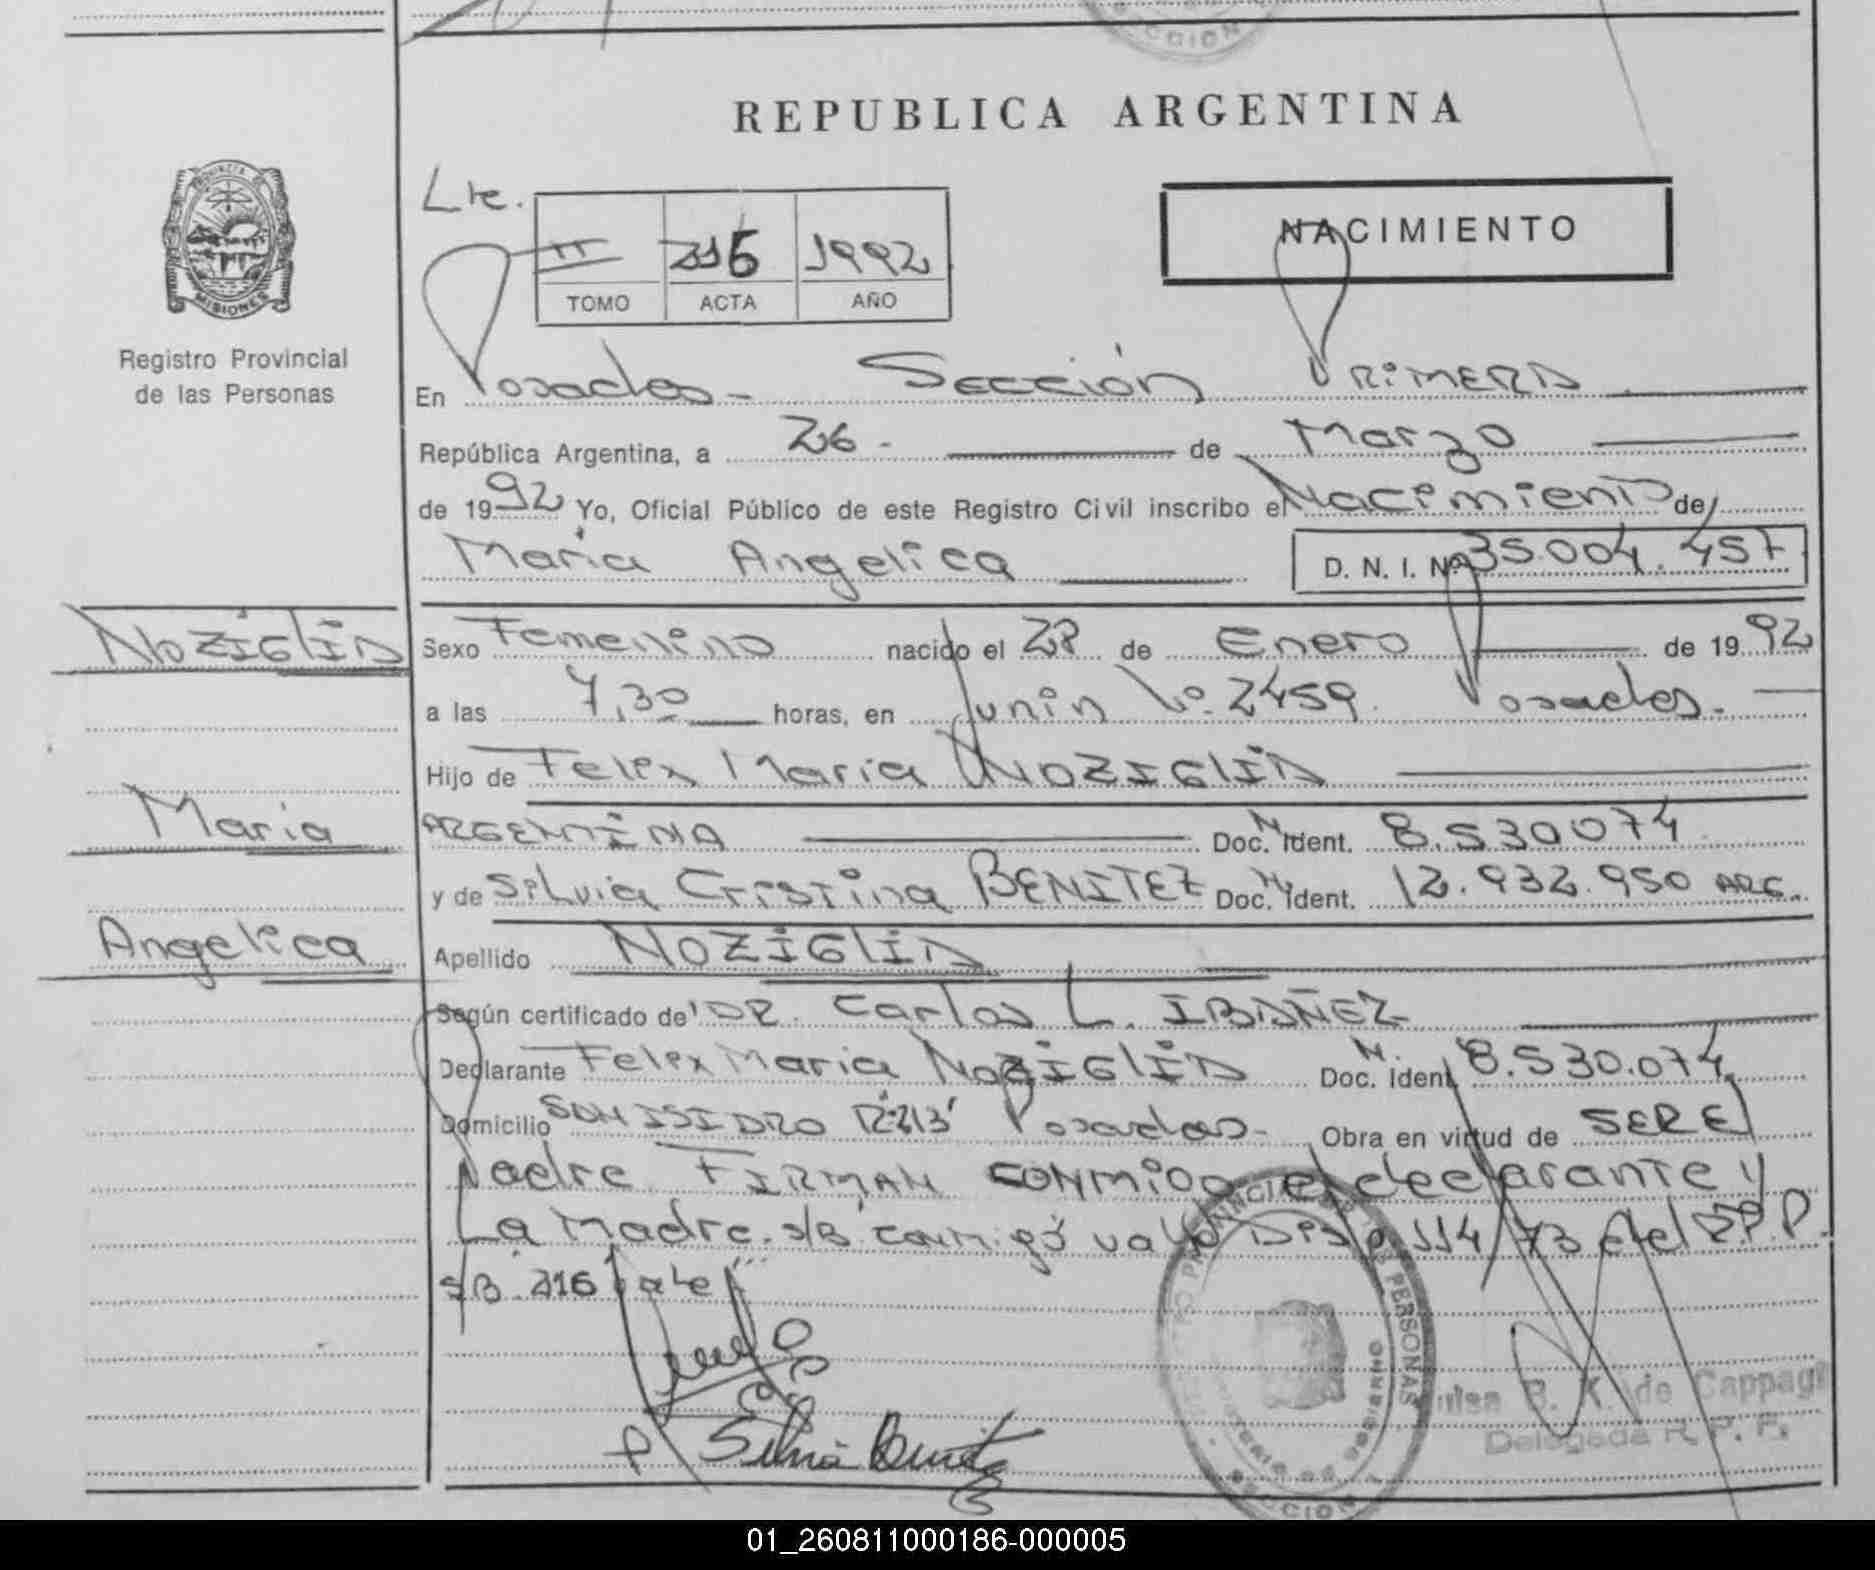 REPUBLICA ARGENTINA
PROVINCIA DE
MISIONES
Registro Provincial
de las Personas
NACIMIENTO
II 216 1992
TOMO ACTA AÑO
En Posadas - Sección PRIMERA
República Argentina, a 26 - de Marzo
de 1992 Yo, Oficial Público de este Registro Civil inscribo el Nacimiento de
María Angelica D. N. I. Nº 35.004.457
NOZIGLIA
Sexo Femenino nacido el 28 de Enero de 1992
a las 7,30 horas, en Junin Nº 2459. Posadas.
Hijo de Felix Maria NOZIGLIA
Maria
ARGENTINA Doc. N. Ident. 8.530074
y de Silvia Cristina BENITEZ Doc. N. Ident. 12.932.950 ARG.
Angelica
Apellido NOZIGLIA
Según certificado de DR. Carlos L. IBAÑEZ
Declarante Felix Maria NOZIGLIA N. Doc. Ident. 8.530.074
Domicilio SAN ISIDRO Posadas - Obra en virtud de SER El
Padre FIRMAN CONMigo el declarante y
La Madre. s/B conmigo vale Disp 114/73 del
s/B. 216 Vale
Silvia Benitez
de Cappagli
Delegada R. P. P.
PERSONAS
SECCION
01_260811000186-000005